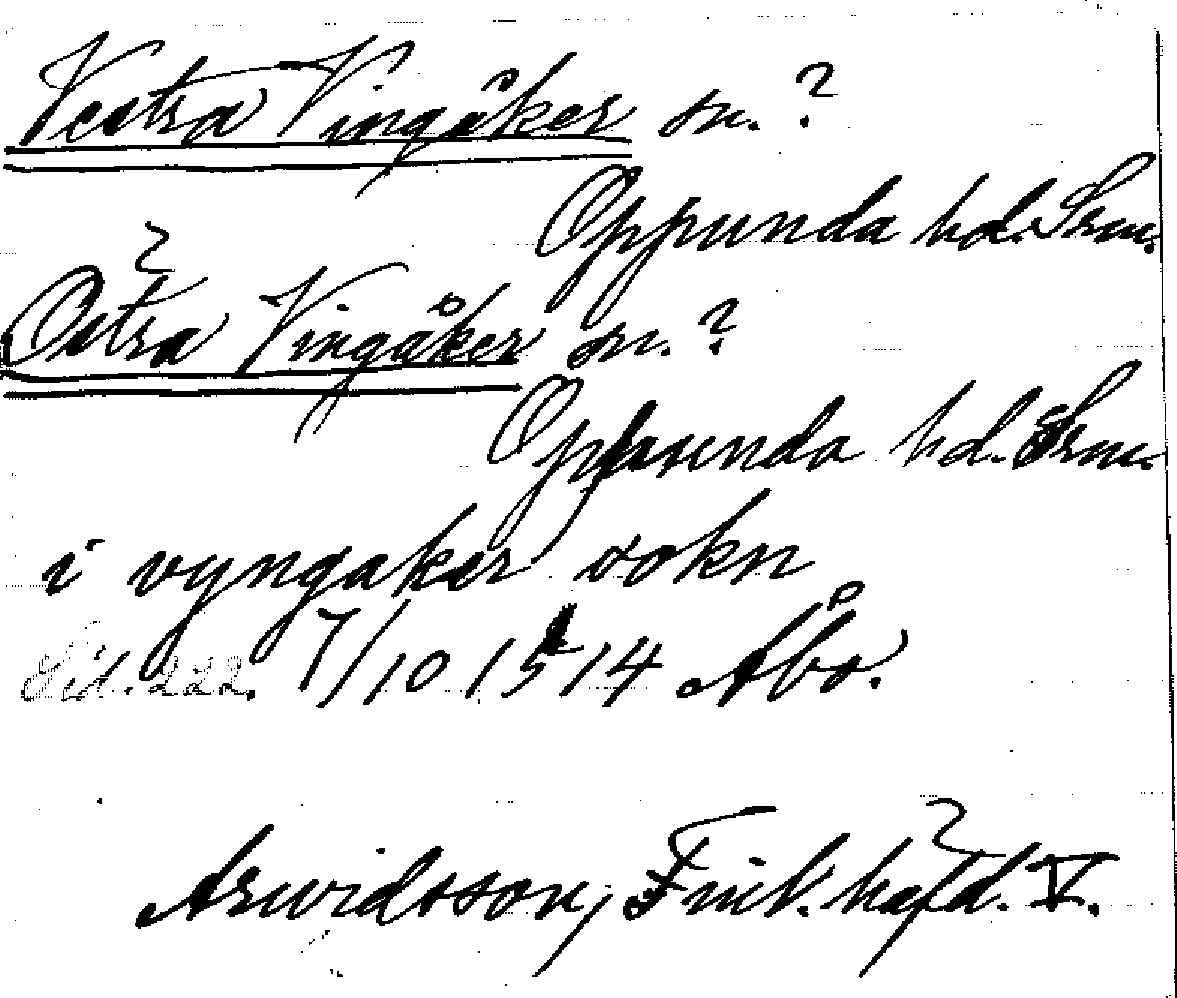 Vestra Vingåker sn. ?
Oppunda hd. Srm.
Östra Vingåker sn. ?
Oppunda hd. Srm.
i vyngaker sokn
Sid. 222. 7/10 1514 Åbo.
Arwidsson, Finl. häfd. V.